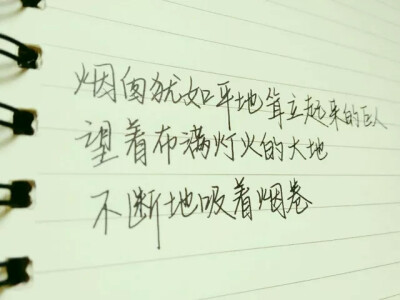 烟囱犹如平地耸立起来的巨人
望着布满灯火的大地
不断地吸着烟卷